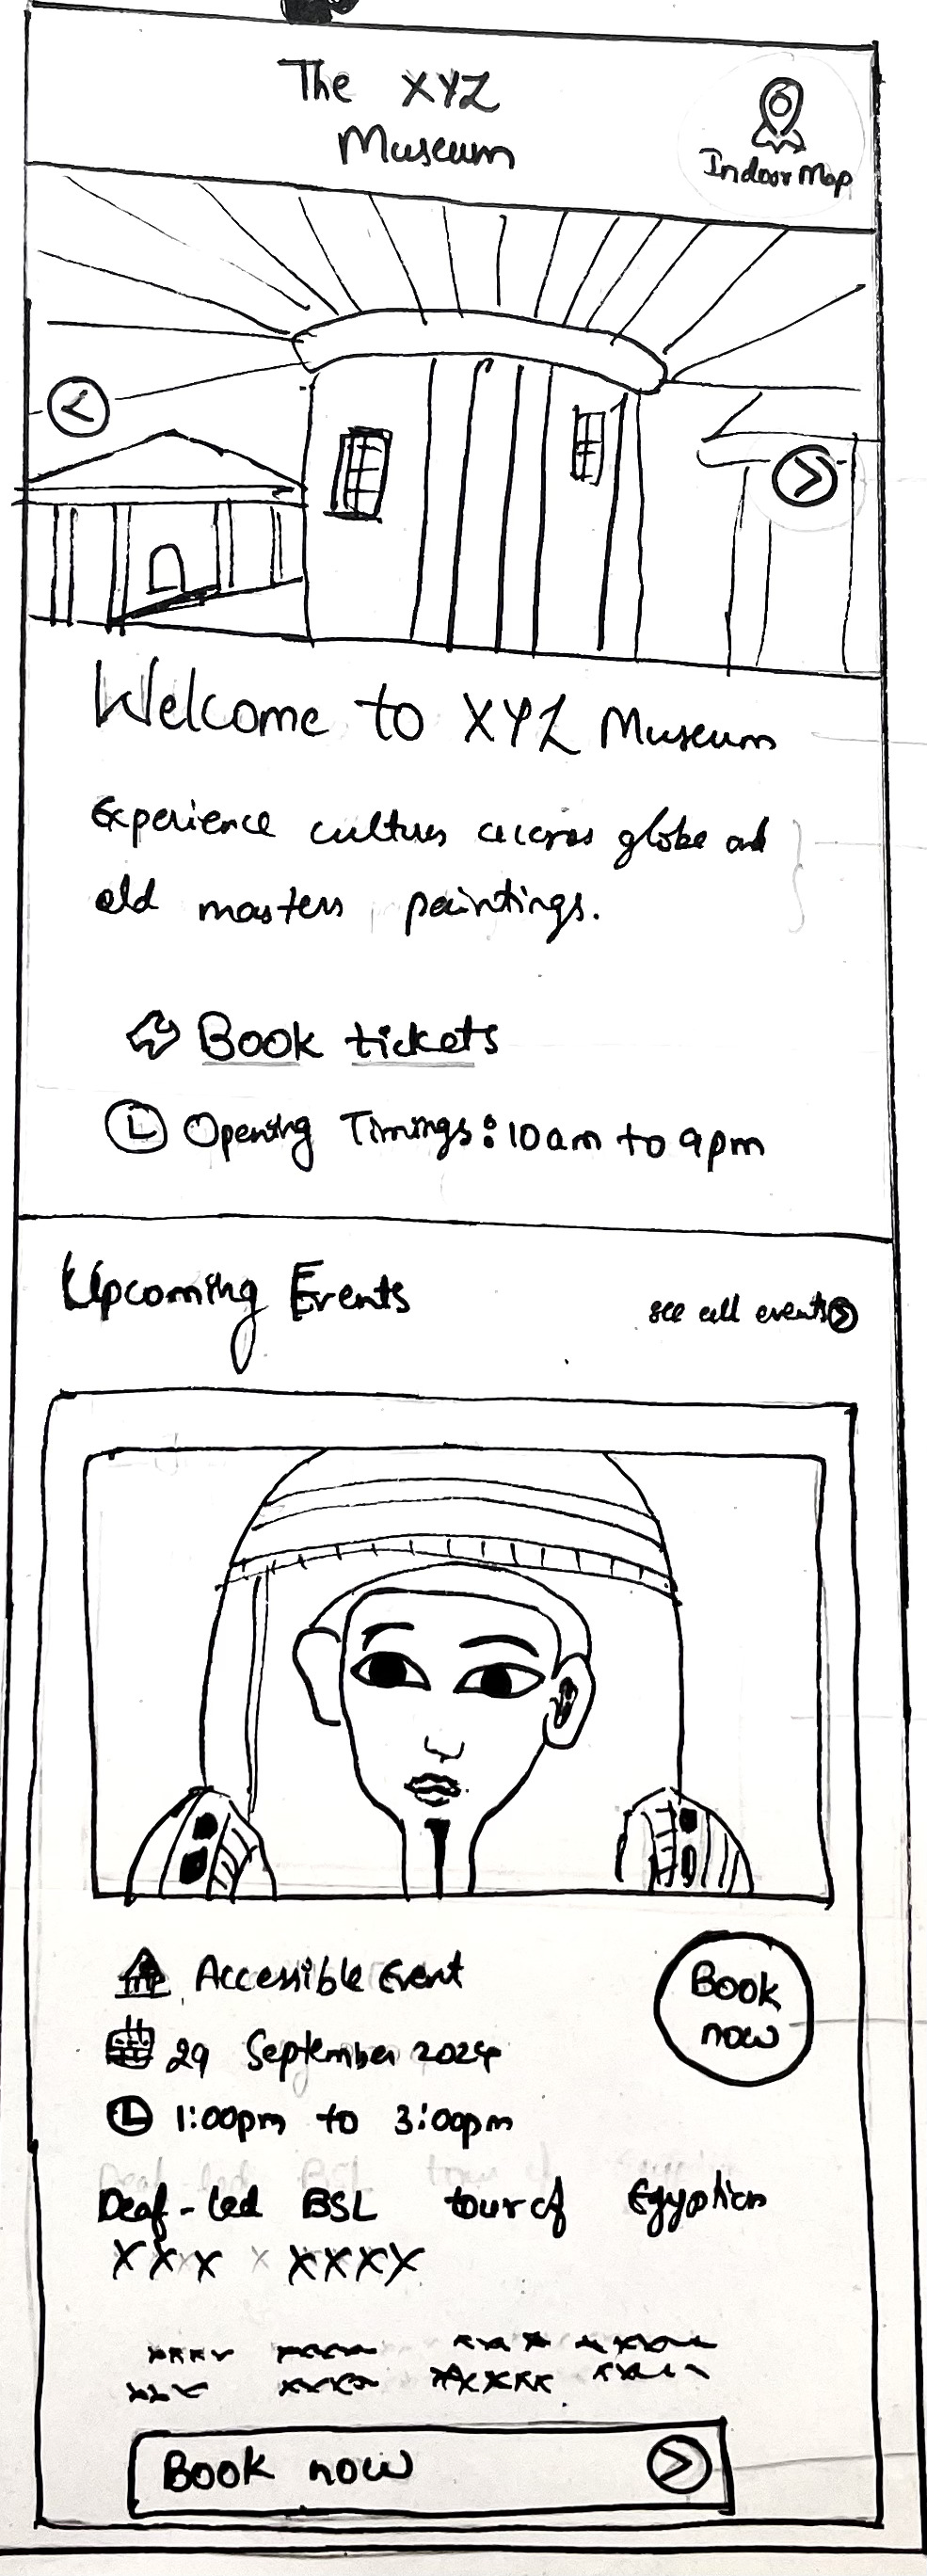 The XYZ
Museum
Indoor Map
Welcome to XYZ Museum
Experience cultures accros globe and
old masters paintings.
Book tickets
Opening Timings: 10am to 9pm
Upcoming Events
see all events
Accessible Event
29 September 2024
1:00pm to 3:00pm
Book
now
Deaf-led BSL tour of Egyptian
XXX XXXX
Book now